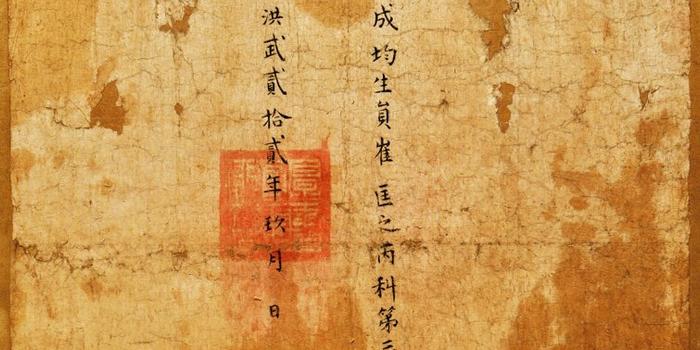 成均生員崔匡之丙科第三
洪武貳拾貳年玖月日